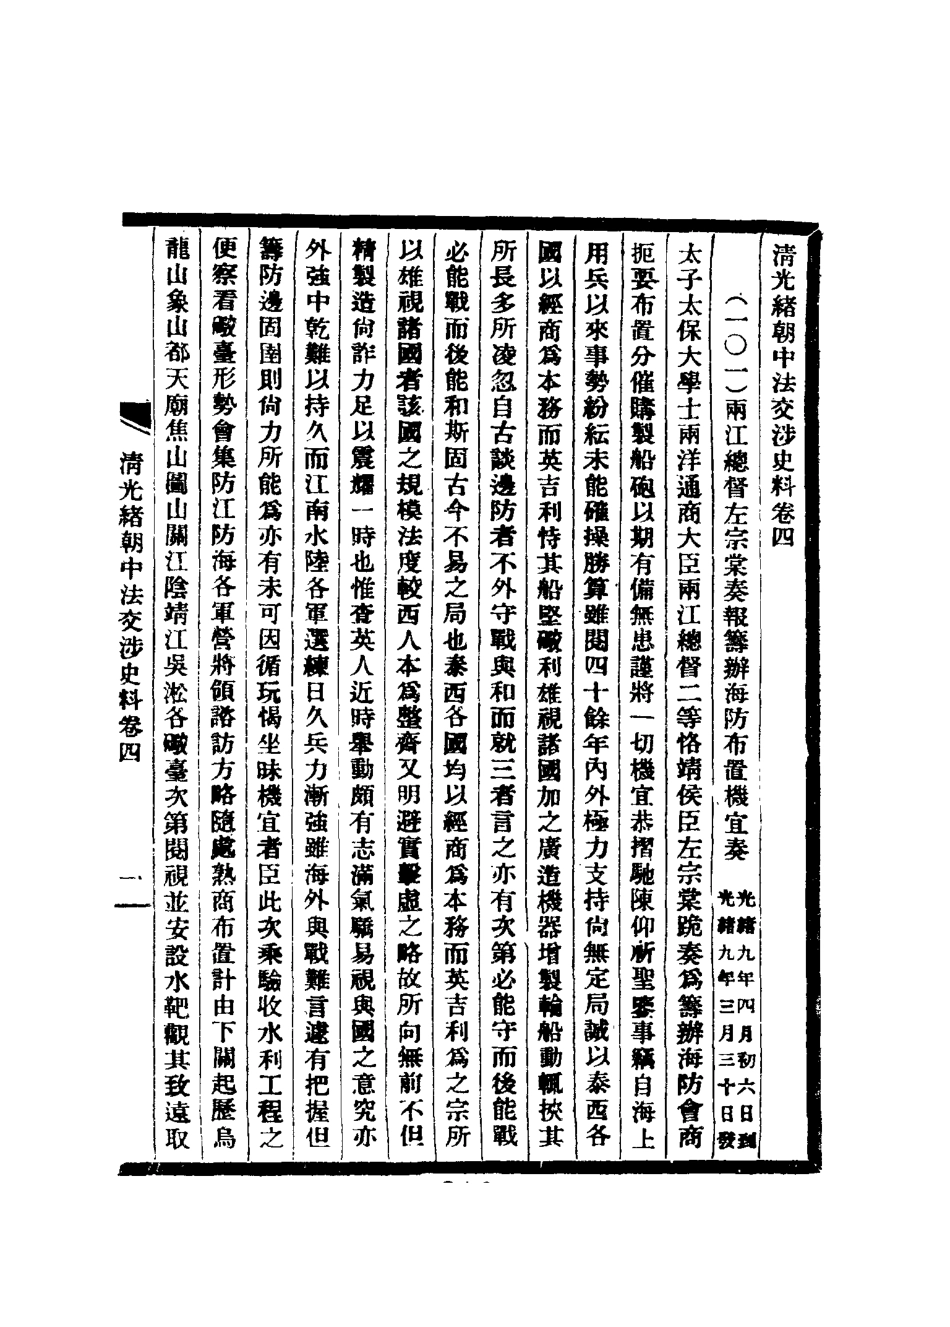 清光緒朝中法交涉史料卷四
（一〇一）兩江總督左宗棠奏報籌辦海防布置機宜奏
光緒九年四月初六日到
光緒九年三月三十日發
太子太保大學士兩洋通商大臣兩江總督二等恪靖侯臣左宗棠跪奏爲籌辦海防會商
扼要布置分催購製船砲以期有備無患謹將一切機宜恭摺馳陳仰祈聖鑒事竊自海上
用兵以來事勢紛紜未能確操勝算雖閱四十餘年內外極力支持尙無定局誠以泰西各
國以經商爲本務而英吉利恃其船堅礮利雄視諸國加之廣造機器增製輪船動輒挾其
所長多所凌忽自古談邊防者不外守戰與和而就三者言之亦有次第必能守而後能戰
必能戰而後能和斯固古今不易之局也泰西各國均以經商爲本務而英吉利爲之宗所
以雄視諸國者該國之規模法度較西人本爲整齊又明避實擊虛之略故所向無前不但
精製造尙詐力足以震耀一時也惟査英人近時舉動頗有志滿氣驕易視與國之意究亦
外強中乾難以持久而江南水陸各軍選練日久兵力漸強雖海外與戰難言遽有把握但
籌防邊固圉則尙力所能爲亦有未可因循玩愒坐昧機宜者臣此次乘驗收水利工程之
便察看礮臺形勢會集防江防海各軍營將領諮訪方略隨處熟商布置計由下關起歷烏
龍山象山都天廟焦山圌山關江陰靖江吳淞各礮臺次第閱視並安設水靶觀其致遠取
清光緒朝中法交涉史料卷四
一